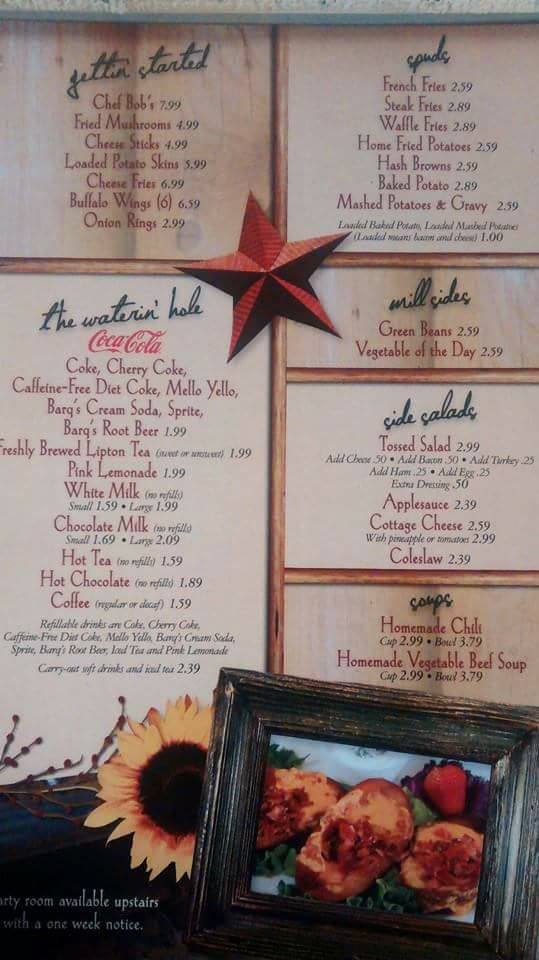 gettin' started
Chef Bob's 7.99
Fried Mushrooms 4.99
Cheese Sticks 4.99
Loaded Potato Skins 5.99
Cheese Fries 6.99
Buffalo Wings (6) 6.59
Onion Rings 2.99
the waterin' hole
Coca-Cola
Coke, Cherry Coke,
Caffeine-Free Diet Coke, Mello Yello,
Barq's Cream Soda, Sprite,
Barq's Root Beer 1.99
Freshly Brewed Lipton Tea (sweet or unsweet) 1.99
Pink Lemonade 1.99
White Milk (no refills)
Small 1.59 • Large 1.99
Chocolate Milk (no refills)
Small 1.69 • Large 2.09
Hot Tea (no refills) 1.59
Hot Chocolate (no refills) 1.89
Coffee (regular or decaf) 1.59
Refillable drinks are Coke, Cherry Coke,
Caffeine-Free Diet Coke, Mello Yello, Barq's Cream Soda,
Sprite, Barq's Root Beer, Iced Tea and Pink Lemonade
Carry-out soft drinks and iced tea 2.39
arty room available upstairs
with a one week notice.
spuds
French Fries 2.59
Steak Fries 2.89
Waffle Fries 2.89
Home Fried Potatoes 2.59
Hash Browns 2.59
Baked Potato 2.89
Mashed Potatoes & Gravy 2.59
Loaded Baked Potato, Loaded Mashed Potatoes
(Loaded means bacon and cheese) 1.00
mill sides
Green Beans 2.59
Vegetable of the Day 2.59
side salads
Tossed Salad 2.99
Add Cheese .50 • Add Bacon .50 • Add Turkey .25
Add Ham .25 • Add Egg .25
Extra Dressing .50
Applesauce 2.39
Cottage Cheese 2.59
With pineapple or tomatoes 2.99
Coleslaw 2.39
soups
Homemade Chili
Cup 2.99 • Bowl 3.79
Homemade Vegetable Beef Soup
Cup 2.99 • Bowl 3.79